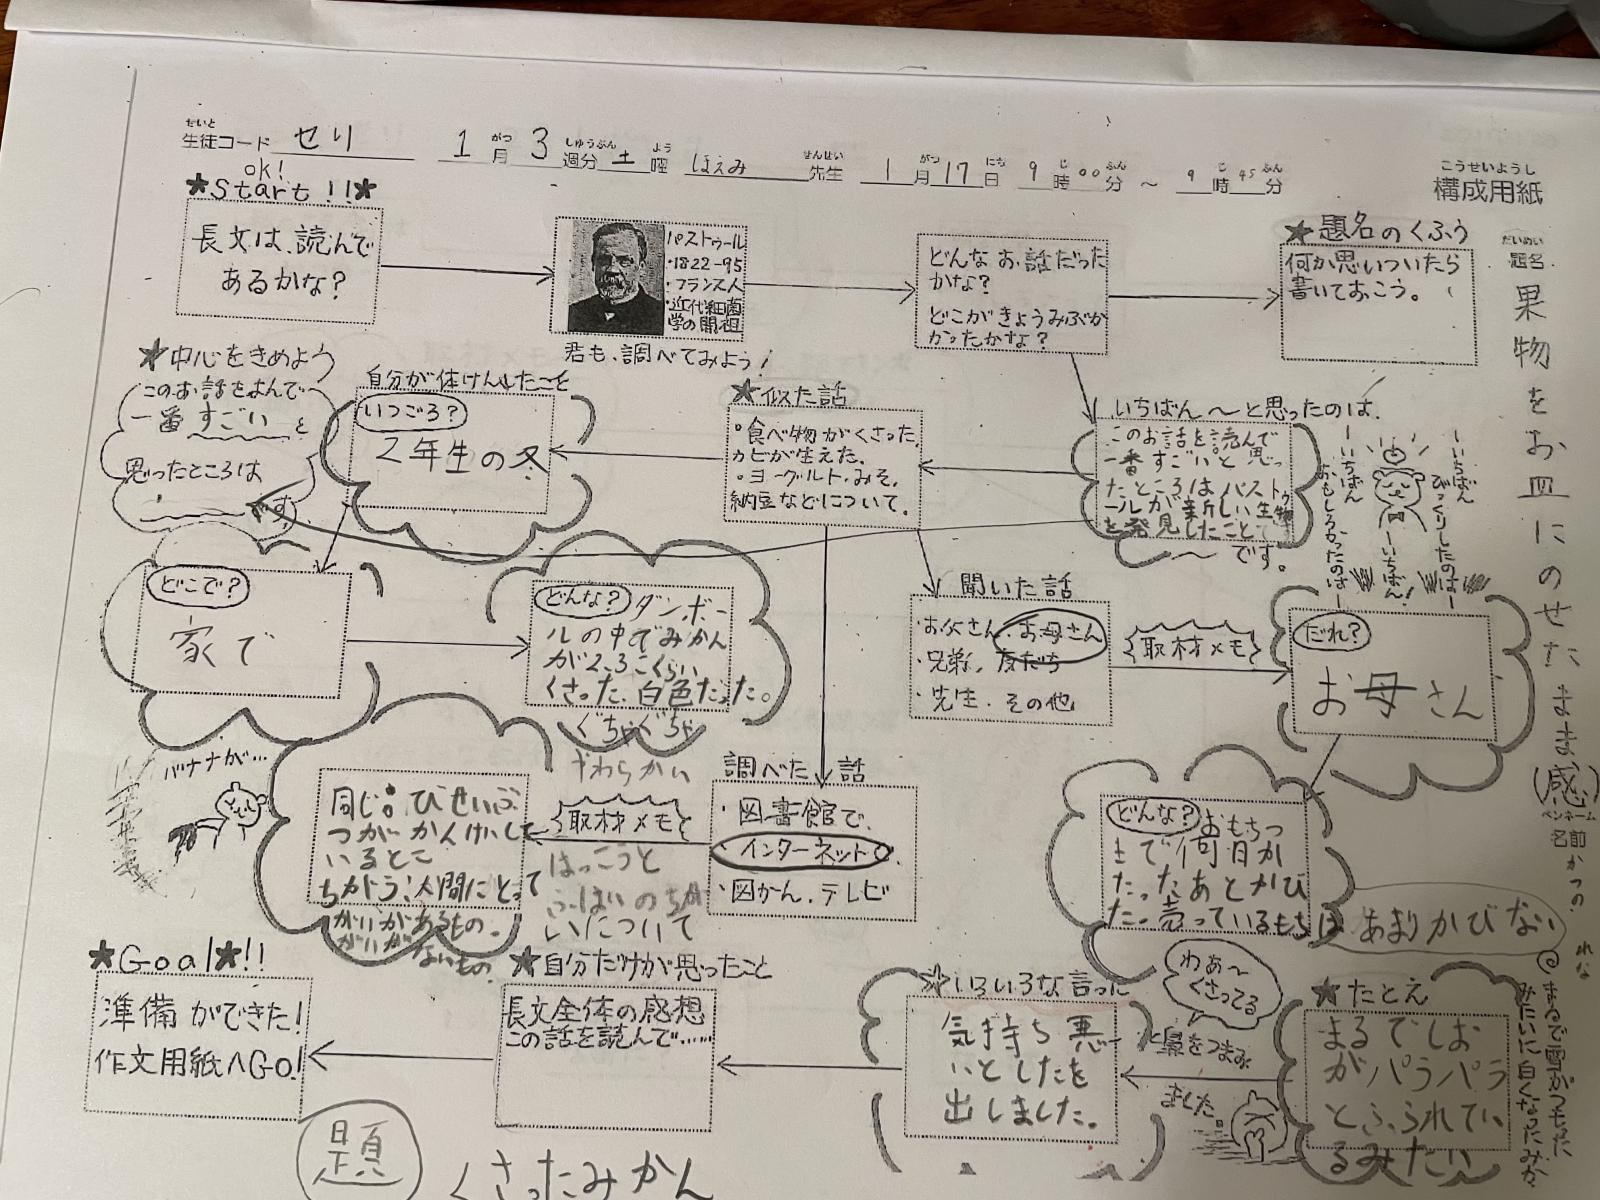 せいと がつ しゅうぶん よう せんせい がつ にち じ ふん じ ふん
生徒コード せり 1月 3週分 土曜 ほえみ先生 1月17日 9時00分 ～ 9時45分
こうせいようし
構成用紙
ok!
★Start!!★
長文は、読んで
あるかな?
パストゥール
・1822-95
・フランス人
・近代細菌
学の開祖
君も、調べてみよう!
どんなお話だった
かな?
どこがきょうみぶか
かったかな?
★題名のくふう
何か思いついたら
書いておこう。
だいめい
題名
果物をお皿にのせたまま(感)
ペンネーム
名前
かつの
れな
★中心をきめよう
このお話をよんで
一番すごいと
思ったところは
です。
自分が体けんしたこと
いつごろ?
2年生の冬
★似た話
・食べ物がくさった、
カビが生えた。
・ヨーグルト・みそ、
納豆などについて。
いちばん～と思ったのは、
このお話を読んで
一番すごいと思っ
たところはパストゥ
ールが新しい生物
を発見したことで
～です。
ーいちばん
びっくりしたのはー
ーいちばん
おもしろかったのはー
ーいちばん!
どこで?
家で
どんな? ダンボー
ルの中でみかん
が2、3こくらい
くさった、白色だった。
ぐちゃぐちゃ
やわらかい
聞いた話
・お父さん、お母さん
・兄弟、友だち
・先生・その他
取材メモ
だれ?
お母さん
バナナが…
同じ。びせいぶ
つがかんけいして
いるとこ
ちがう:人間にとって
がいがあるもの。
がいがないもの
取材メモ
はっこうと
ふはいのちが
いについて
調べた話
・図書館で、
・インターネットで、
・図かん、テレビ
どんな? おもちつ
きで何日か
たったあとかび
た。売っているもちは
あまりかびない
★Goal★!!
準備ができた!
作文用紙へGo!
★自分だけが思ったこと
長文全体の感想
この話を読んで……
☆いろいろな言った
気持ち悪
いとしたを
出しました。
わぁ～
くさってる
と鼻をつまみ
ました。
★たとえ
まるでしお
がパラパラ
とふられてい
るみたい
まるで雪がつもった
みたいに白くなったみか
題
くさったみかん